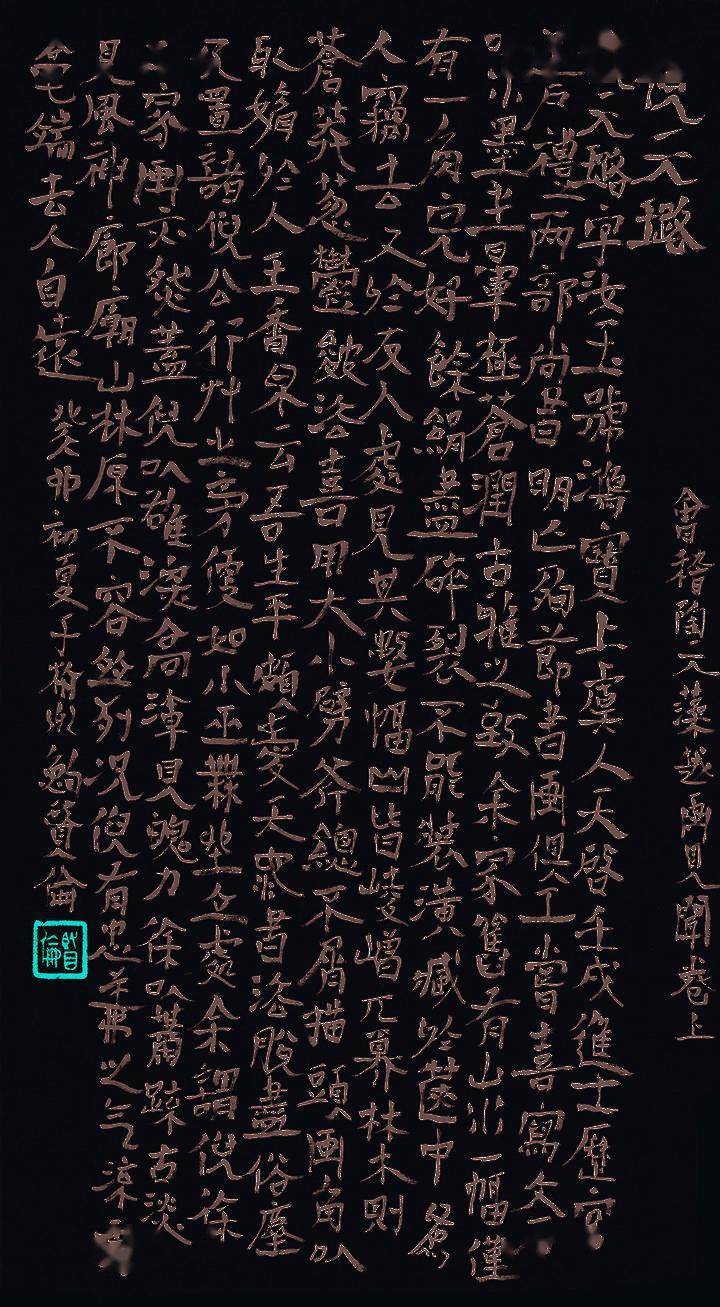 會稽陶元藻越畫見聞卷上
倪元璐
元璐字汝玉號鴻寶上虞人天啓壬戌進士歷官
戶禮二兩部尚書明亡殉節書画俱工嘗喜寫文
以水墨生暈極蒼潤古雅之致余家舊有山水一幅僅
有一角完好餘絹盡碎裂不能裝潢藏於篋中為
人竊去又於友人處見其數幅山皆崚嶒兀奡林木則
蒼莽葱鬱皴法喜用大小劈斧總不屑描頭画角以
取媚於人王香泉云吾生平頗愛天池書法脫盡俗塵
及置諸倪公行艸之旁便如小巫無坐立處余謂倪徐
二家画亦然蓋倪以雄深高渾見魄力徐以蕭疎古淡
見風神廊廟山林原不容並列况倪有忠義之气流露
毫端去人自遠 癸卯初夏于